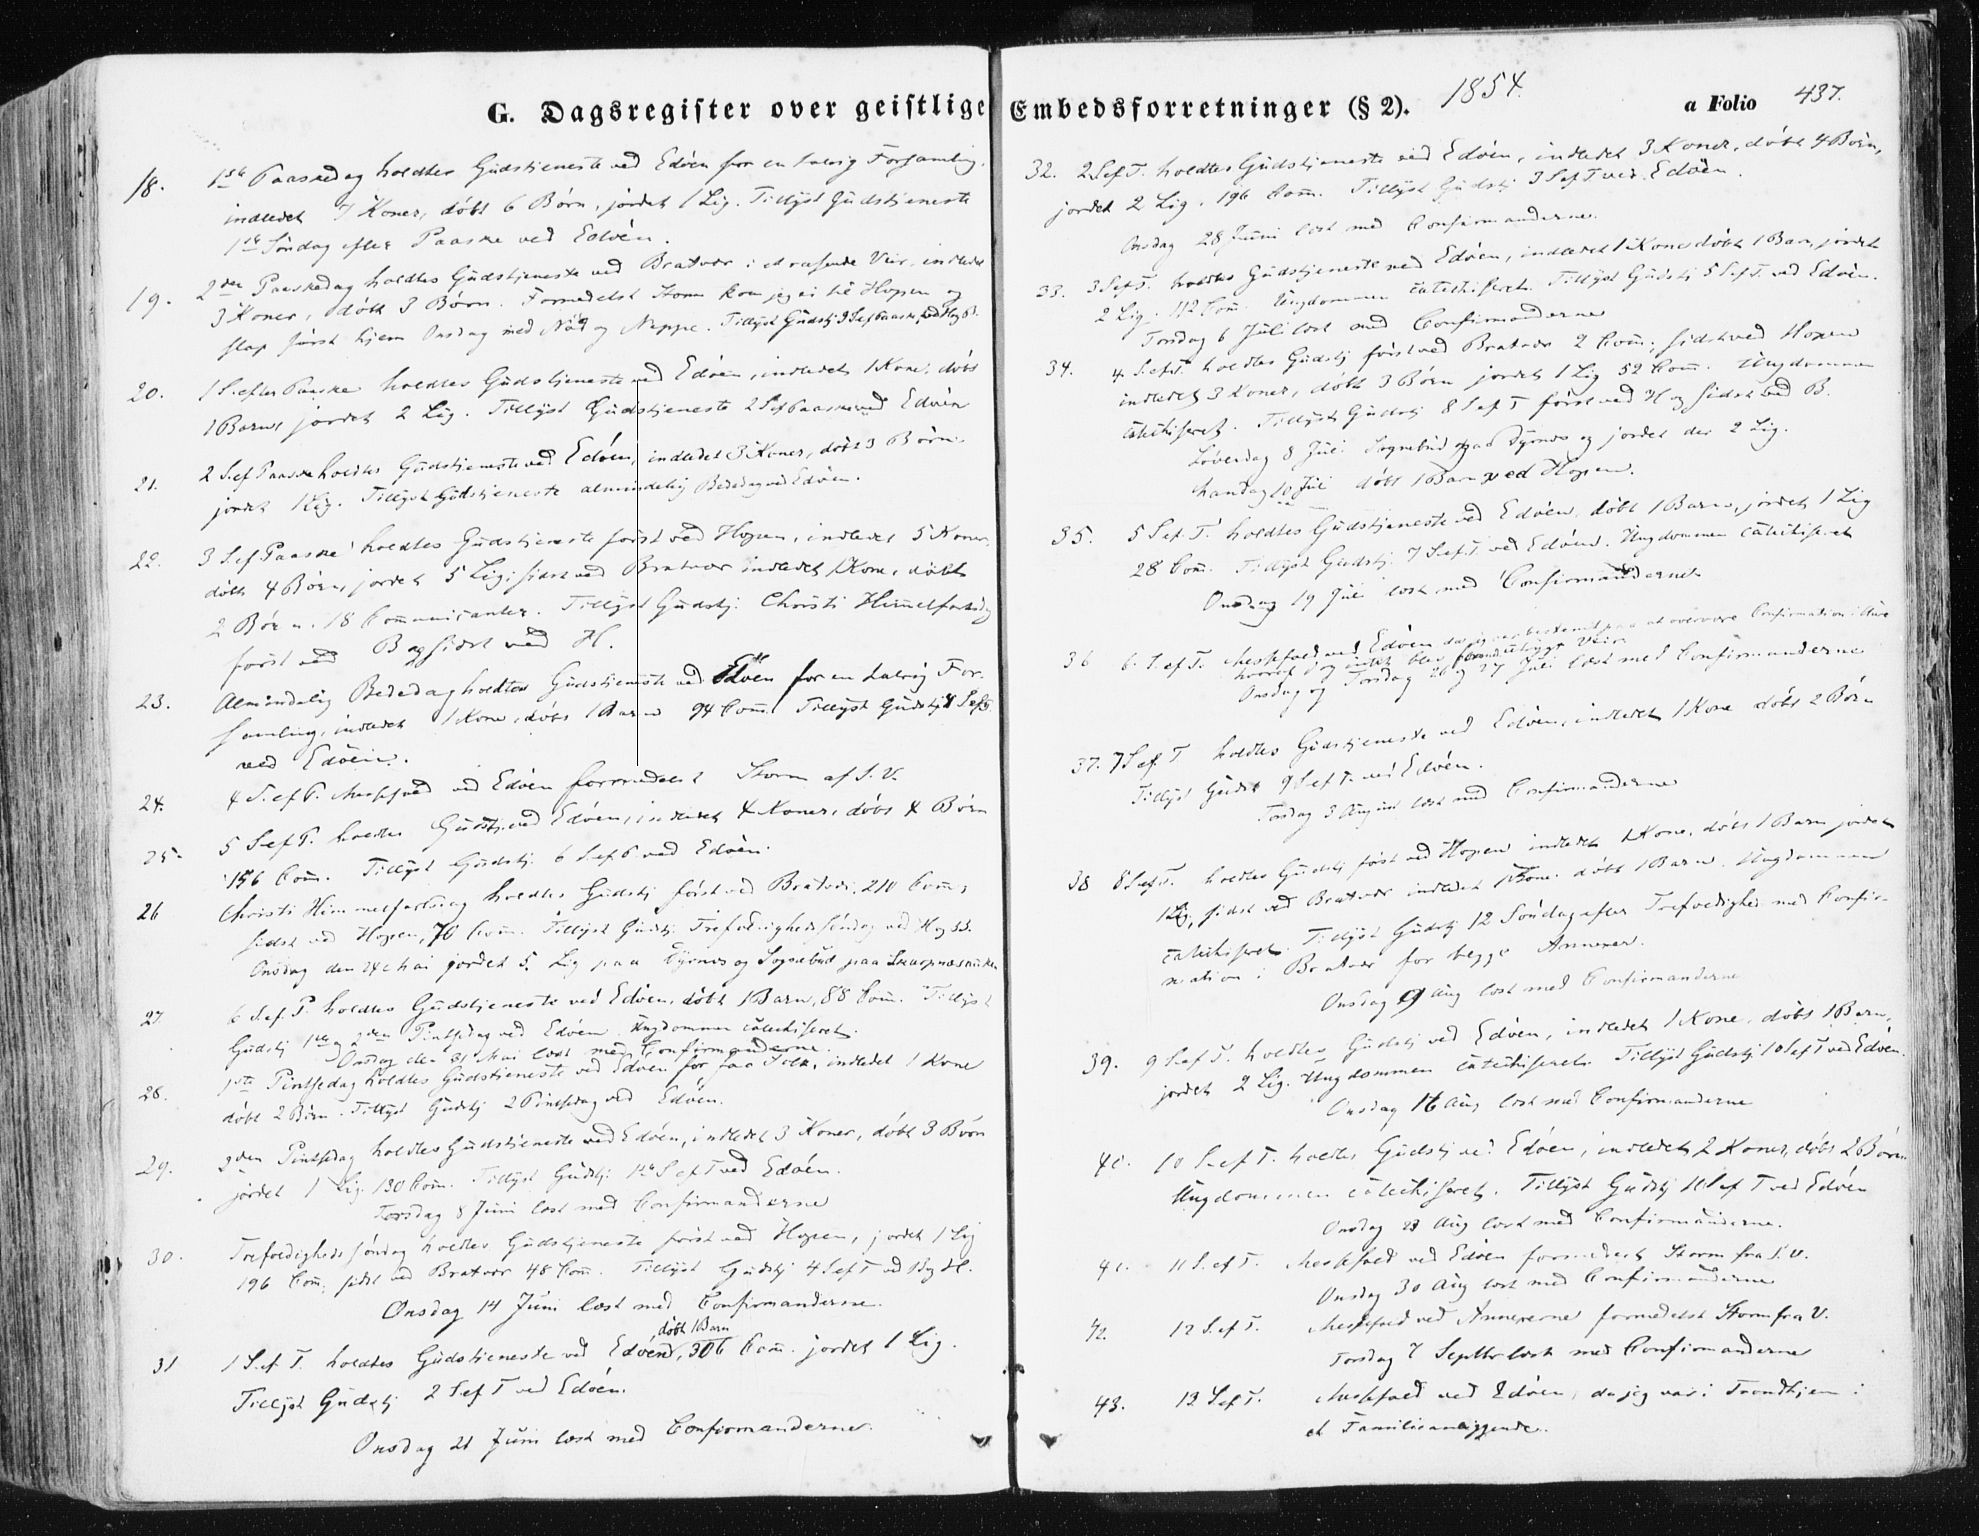 G. Dagsregister over geistlige Embedsforretninger (§ 2). 1854.
a Folio 437.
18. 1ste Paaskedag holdtes Gudstjeneste ved Edøen for en talrig Forsamling,
indledet 7 Koner, døbt 6 Børn, jordet 1 Lig. Tillyst Gudstjeneste
1ste Søndag efter Paaske ved Edøen.
19. 2den Paaskedag holdtes Gudstjeneste ved Bratvær i et rasende Veir, indledet
3 Koner, døbt 3 Børn. Formedelst Storm kom jeg ei til Hopen og
slap først hjem Onsdag med Nød og Neppe. Tillyst Gudstj 3 S ef Paaske ved H og B.
20. 1 S. efter Paaske holdtes Gudstjeneste ved Edøen, indledet 1 Kone, døbt
1 Barn, jordet 2 Lig. Tillyst Gudstjeneste 2 S ef Paaske ved Edøen
21. 2 S. ef Paaske holdtes Gudstjeneste ved Edøen, indledet 3 Koner, døbt 3 Børn
jordet 1 Lig. Tillyst Gudstjeneste almindelig Bededag ved Edøen.
22. 3 S. ef Paaske holdtes Gudstjeneste først ved Hopen, indledet 5 Koner,
døbt 4 Børn, jordet 5 Lig; sidst ved Bratvær indledet 1 Kone, døbt
2 Børn. 18 Communicanter. Tillyst Gudstj. Christi Himmelfartsdag
først ved B og sidst ved H.
23. Almindelig Bededag holdtes Gudstjeneste ved Edøen for en talrig For-
samling, indledet 1 Kone, døbt 1 Barn 94 Com. Tillyst Gudstj 4 S ef P.
ved Edøen.
24. 4 S. ef P. Messefald ved Edøen formedelst Storm af S. V.
25. 5 S. ef P. holdtes Gudstj. ved Edøen, indledet 4 Koner, døbt 4 Børn
156 Com. Tillyst Gudstj. 6 S. ef P ved Edøen.
26 Christi Himmelfartsdag holdtes Gudstj først ved Bratvær, 210 Com;
sidst ved Hopen, 70 Com. Tillyst Gudstj. Trefoldigheds Søndag ved H og B.
Onsdag den 24 Mai jordet 5 Lig paa Tyrnæs og Sognebud paa
27. 6 S. ef. P. holdtes Gudstjeneste ved Edøen, døbt 1 Barn, 88 Com. Tillyst
Gudstj 1ste og 2den Pintsedag ved Edøen. Ungdommen catechiseret.
Onsdag den 31 Mai læst med Confirmanderne.
28. 1ste Pintsedag holdtes Gudstjeneste ved Edøen for faa Folk, indledet 1 Kone
døbt 2 Børn. Tillyst Gudstj 2 Pintsedag ved Edøen.
29. 2den Pintsedag holdtes Gudstjeneste ved Edøen, indledet 3 Koner, døbt 3 Børn
jordet 1 Lig. 130 Com. Tillyst Gudstj. 1ste S ef T ved Edøen.
Torsdag 8 Juni læst med Confirmanderne
30. Trefoldigheds Søndag holdtes Gudstjeneste først ved Hopen, jordet 1 Lig
196 Com; sidst ved Bratvær 48 Com. Tillyst Gudstj 4 S ef T ved B og H.
Onsdag 14 Juni læst med Confirmanderne.
31 1 S. ef. T. holdtes Gudstjeneste ved Edøen, døbt 1 Barn, 306 Com. jordet 1 Lig.
Tillyst Gudstj 2 S ef T ved Edøen.
Onsdag 21 Juni læst med Confirmanderne.
32. 2 S ef T. holdtes Gudstjeneste ved Edøen, indledet 3 Koner, døbt 4 Børn,
jordet 2 Lig, 196 Com. Tillyst Gudstj 3 S ef T ved Edøen.
Onsdag 28 Juni læst med Confirmanderne.
33. 3 S ef T. holdtes Gudstjeneste ved Edøen, indledet 1 Kone døbt 1 Barn, jordet
2 Lig. 112 Com. Ungdommen catechiseret. Tillyst Gudstj 5 S ef T. ved Edøen.
Torsdag 6 Juli læst med Confirmanderne
34. 4 S. ef T. holdtes Gudstj først ved Bratvær 2 Com; sidst ved Hopen
indledet 3 Koner, døbt 3 Børn jordet 1 Lig 52 Com. Ungdommen
catechiseret. Tillyst Gudstj 8 S ef T først ved H og sidst ved B.
Løverdag 8 Juli Sognebud paa Tyrnæs og jordet der 2 Lig.
Mandag 10 Juli døbt 1 Barn ved Hopen.
35. 5 S ef. T. holdtes Gudstjeneste ved Edøen, døbt 1 Barn, jordet 1 Lig
28 Com. Tillyst Gudstj. 7 S ef. T. ved Edøen. Ungdommen catechiseret
Onsdag 19 Juli læst med Confirmanderne
36 6. S. ef T. Messefald ved Edøen da jeg var bestemt paa at overvære Confirmation i Aure
hvoraf dog intet blev formedelst Veir.
Onsdag og Torsdag 26 og 27 Juli læst med Confirmanderne
37. 7 S ef. T holdtes Gudstjeneste ved Edøen, indledet 1 Kone døbt 2 Børn
Tillyst Gudst 9 S ef T. ved Edøen.
Torsdag 3 August læst med Confirmanderne
38 8 S ef T. holdtes Gudstj først ved Hopen indledet 1 Kone, døbt 1 Barn jordet
1 Lig, sidst ved Bratvær indledet 1 Kone døbt 1 Barn. Ungdommen
catechiseret. Tillyst Gudstj 12 Søndag efter Trefoldighed med Confir-
mation i Bratvær for begge Annexer.
Onsdag 9 Aug læst med Confirmanderne
39. 9 S ef T. holdtes Gudstj ved Edøen, indledet 1 Kone, døbt 1 Barn,
jordet 2 Lig. Ungdommen catechiseret. Tillyst Gudstj 10 S ef T ved Edøen.
Onsdag 16 Aug læst med Confirmanderne
40. 10 S. ef T. holdtes Gudstj ved Edøen, indledet 2 Koner, døbt 2 Børn
Ungdommen catechiseret. Tillyst Gudstj 11 S ef T ved Edøen
Onsdag 23 Aug læst med Confirmanderne.
41. 11 S. ef T. Messefald ved Edøen formedelst Storm fra S. V.
Onsdag 30 Aug læst med Confirmanderne
42. 12 S. ef T. Messefald ved Annexerne formedelst Storm fra V.
Torsdag 7 Septbr læst med Confirmanderne
43. 13 S ef T. Messefald ved Edøen, da jeg var i Trondhjem i
et Familieanliggende.